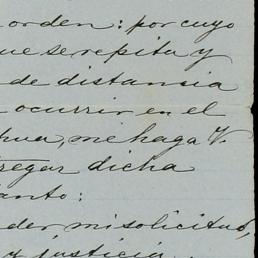 orden: por cuyo
que se repita y
de distancia
ocurrir en el
hua, me haga V.
tregar dicha
tanto:
der mi solicitud,
y justicia